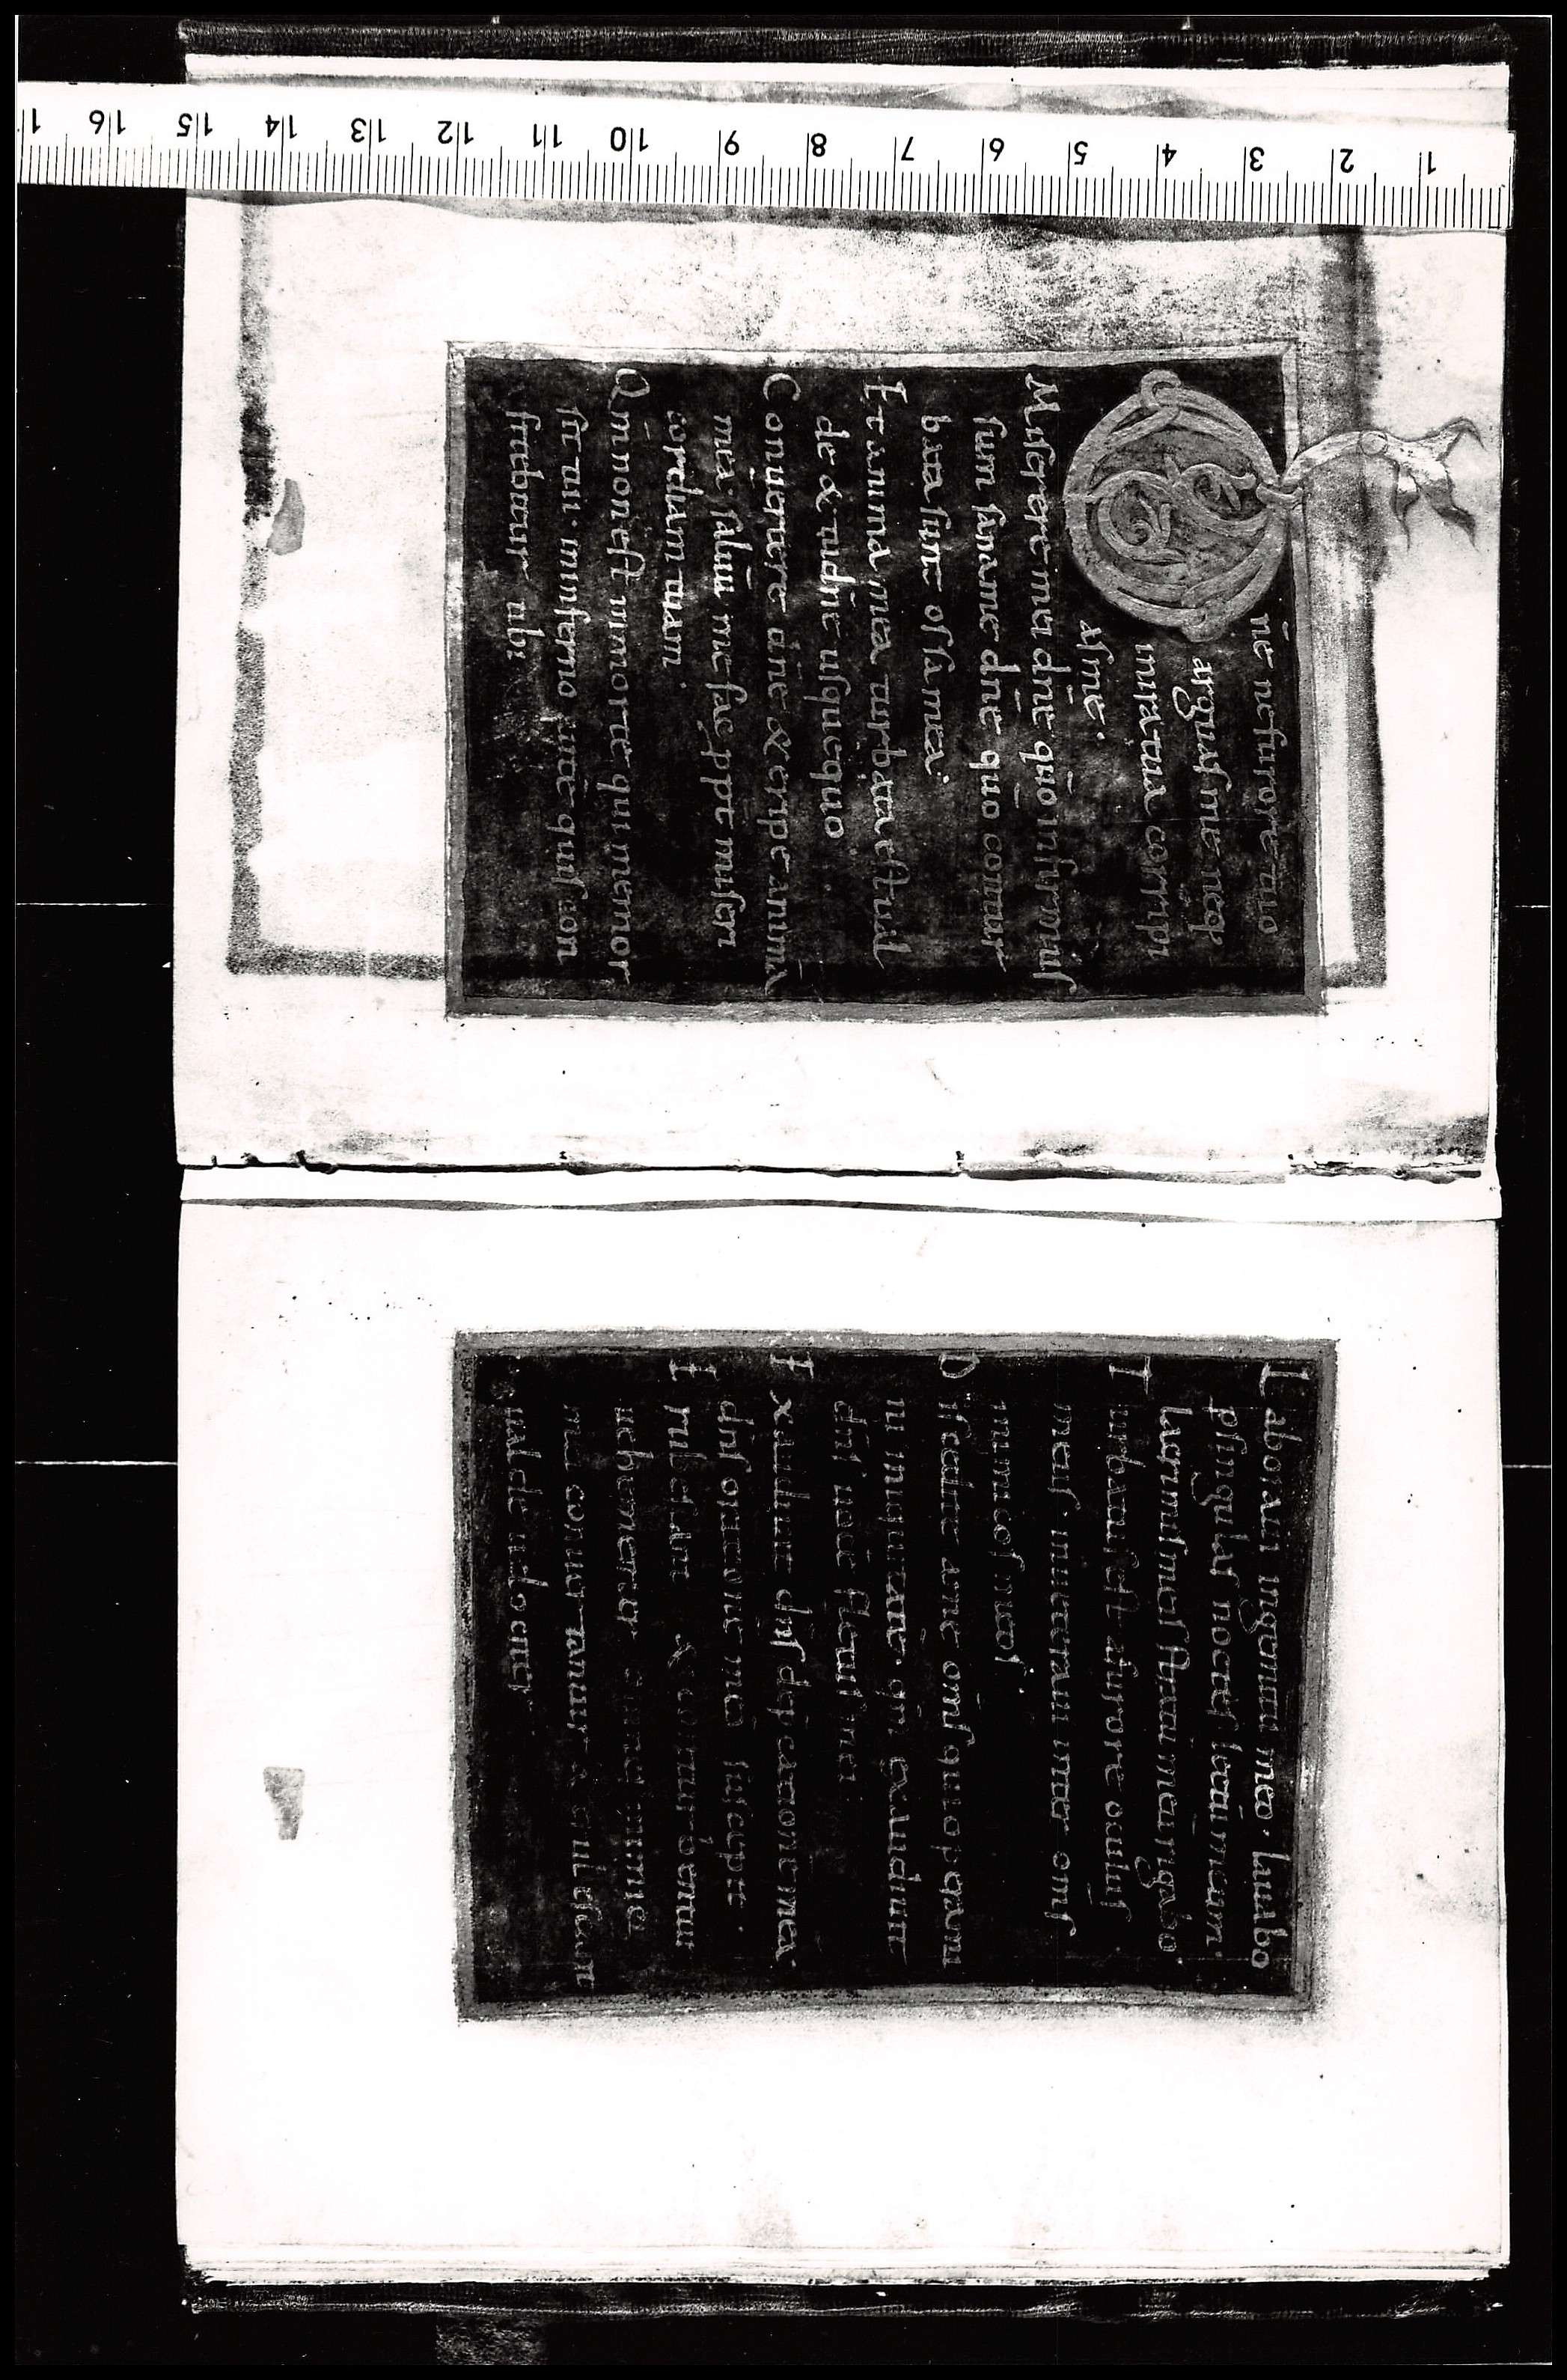 1 2 3 4 5 6 7 8 9 10 11 12 13 14 15 16 1
Dn̄e ne furore tuo
arguas me neq;
in ira tua corripi
as me.
Miserere mei dn̄e quo infirmus
sum sana me dn̄e quo contur
bata sunt ossa mea.
Et anima mea turbata est ual
de & tu dn̄e usquequo
Conuertere dn̄e & eripe animā
meā saluū me fac ppt miseri
cordiam tuam.
Qm̄ non est in morte qui memor
sit tui. in inferno autē quis con
fitebitur tibi
Laboraui in gemitu meo. lauabo
p singulas noctes lectū meum.
lacrimis meis stratū meū rigabo
Turbatus est a furore oculus
meus inueteraui inter om̄s
inimicos meos.
Discedite a me om̄s qui operami
ni iniquitatē. qm̄ exaudiuit
dn̄s uocē fletus mei
Exaudiuit dn̄s depcationē meā
dn̄s orationē meā suscepit.
Erubescant & conturbentur
uehementer omnes inimici
mei conuertantur & erubescan
t ualde uelociter